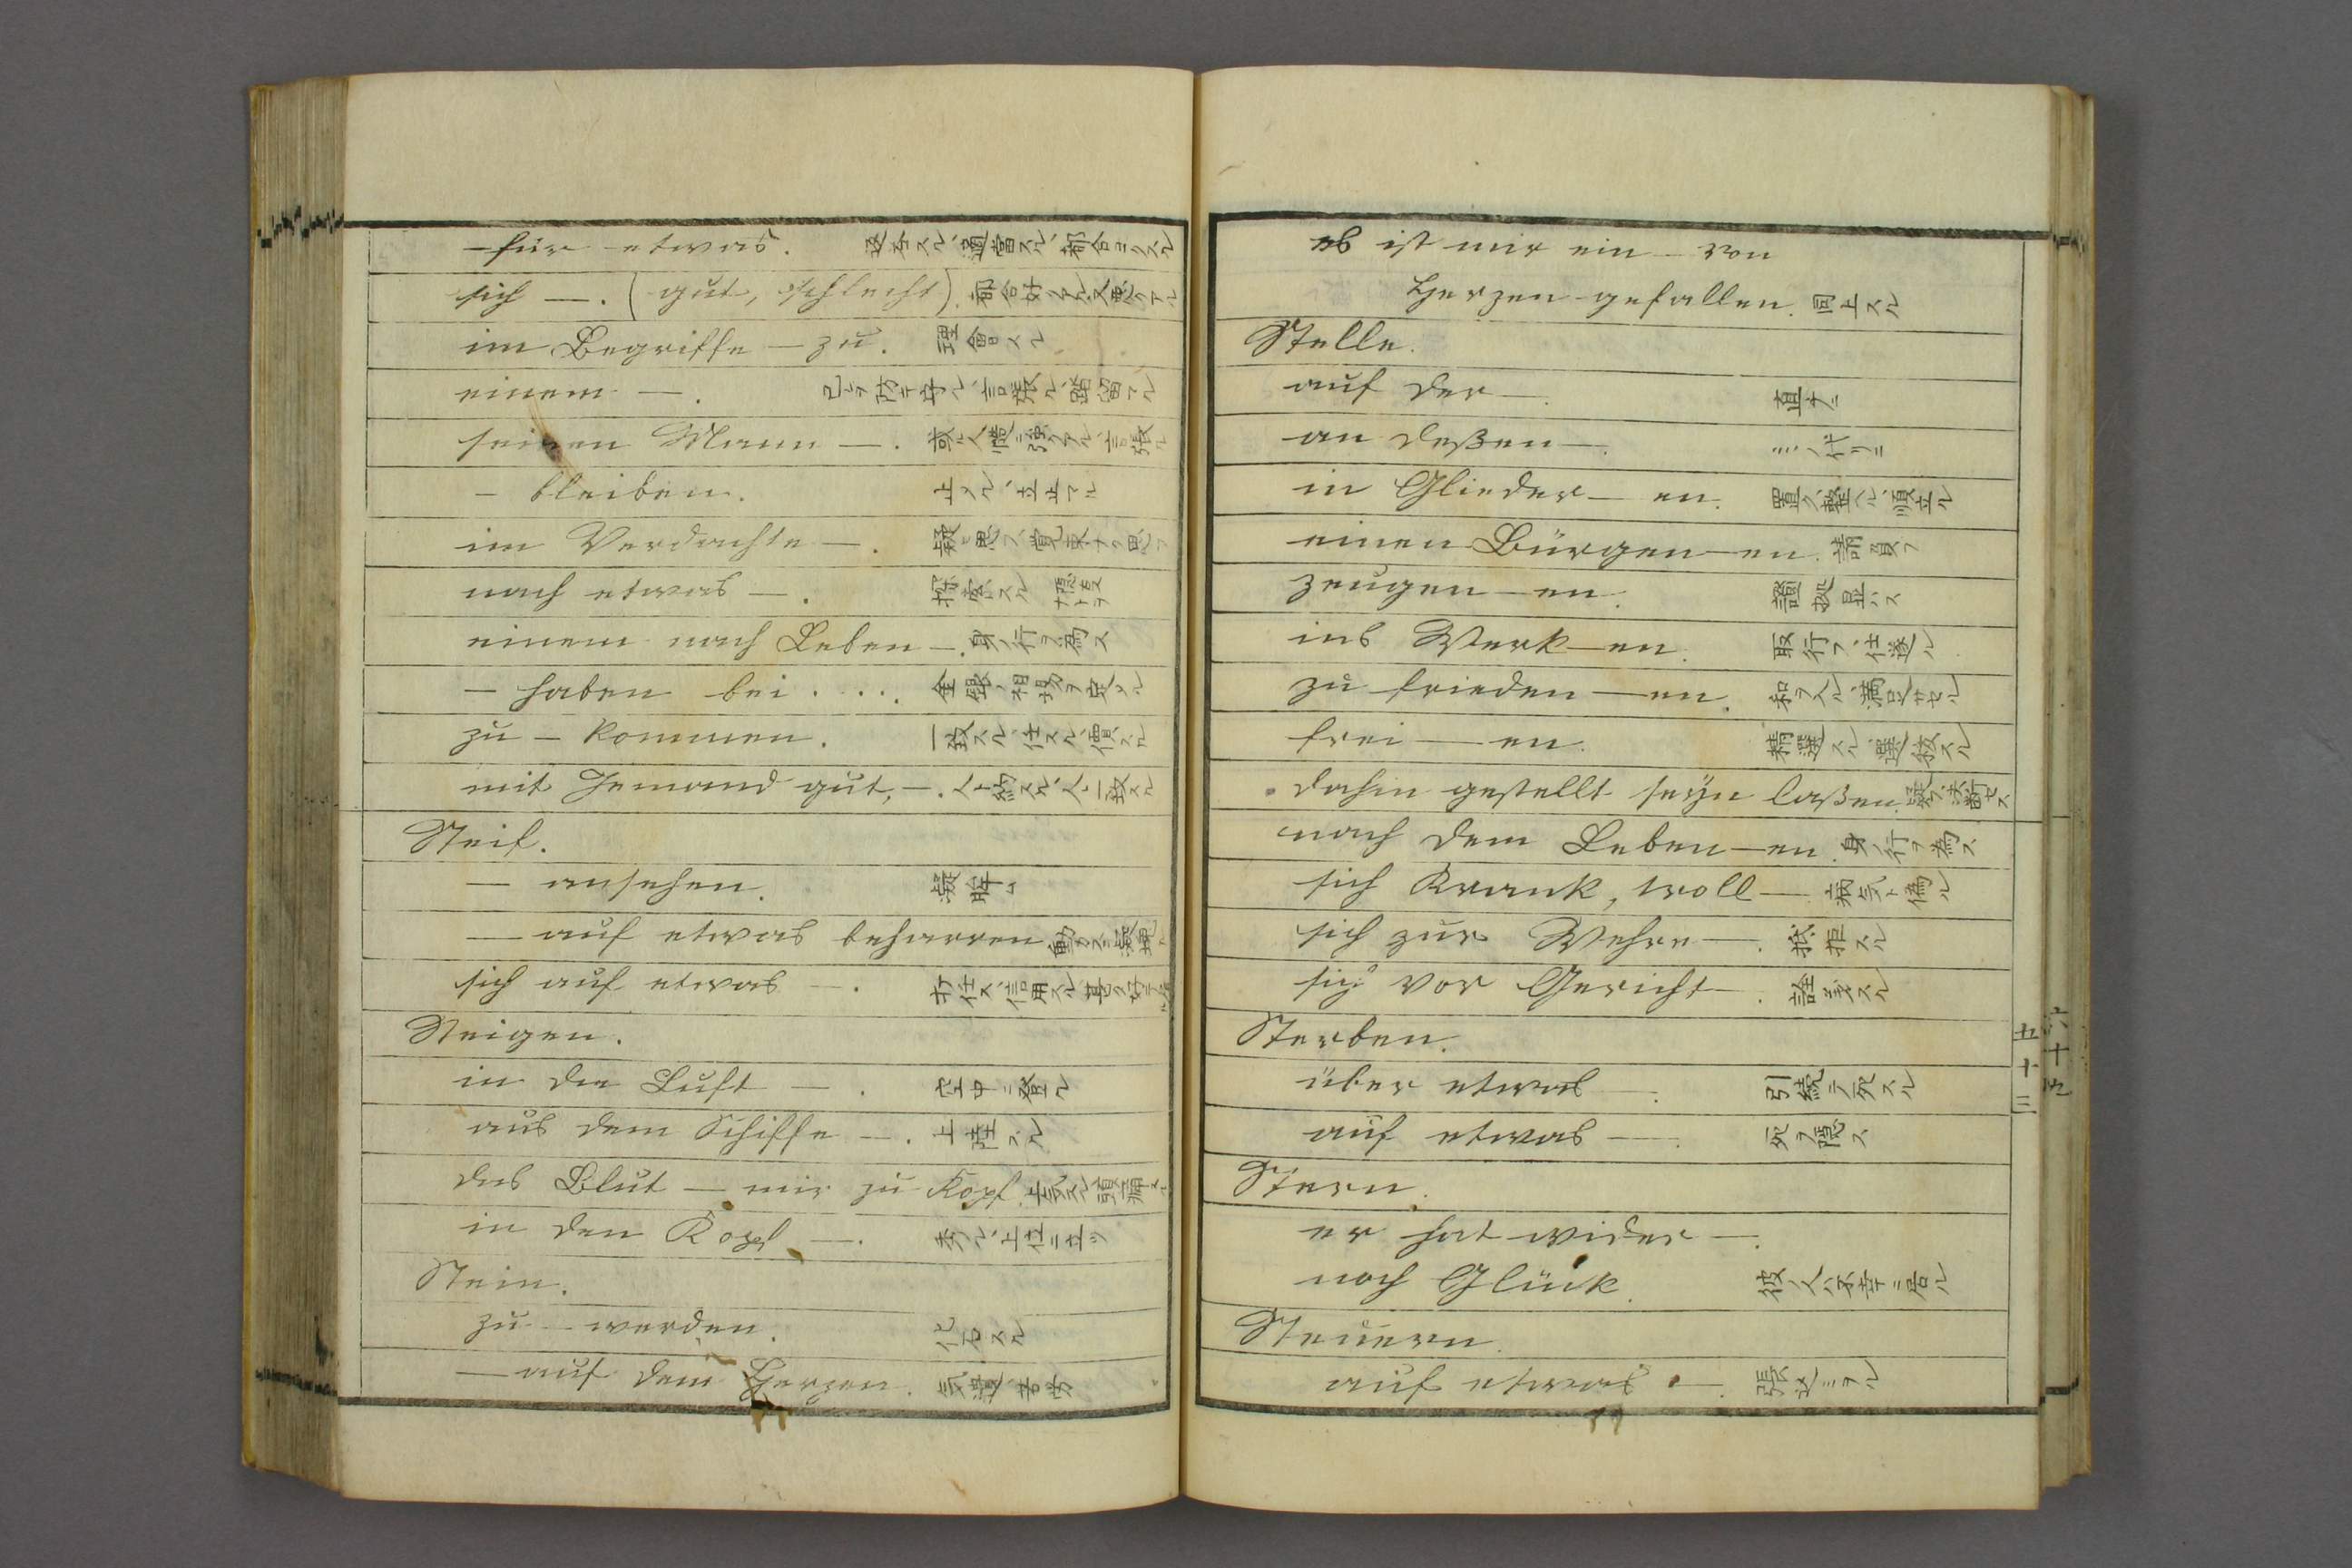 —für etwas. 返答スル、適當スル、都合ヨクスル
sich —. (gut, schlecht). 都合好クアル、又悪クアル
im Begriffe — zu. 理會スル
einem —. 言張ル、踏留マル
seinen Mann —. 言張ル
— bleiben. 止メル、立止マル
im Verdachte —. 疑ヒ思フ、覚束ナク思フ
nach etwas —.
einem nach Leben —. 身ノ行ヲ為ス
— haben bei.... 金銀ノ相場ヲ定メル
zu — kommen. 一致スル、仕スル、價スル
mit Jemand gut, —. 人ト一致スル
Steif.
— ansehen. 凝眸ム
— auf etwas beharren
sich auf etwas —. 打任ス、信用スル
Steigen.
in die Luft —. 空中ニ登ル
aus dem Schiffe —. 上陸スル
das Blut — mir zu Kopf.
in den Kopf —. 上位ニ立ツ
Stein.
zu — werden. 化石スル
— auf dem Herzen. 気遣、苦労
es ist mir ein — von
Herzen gefallen. 同上スル
Stelle.
auf der —. 直チニ
an deßen —. ノ代リニ
in Glieder — en. 置ク、整ヘル、順立ル
einen Bürgen — en. 請負フ
zeugen — en. 證拠显ハス
ins Werk — en. 取行フ、仕遂ル
zu frieden — en. 満足サセル
frei — en. 精選スル、選抜スル
dahin gestellt seÿn laßen.
nach dem Leben — en. 身ノ行ヲ為ス
sich Krank, troll — 病気ト偽ル
sich zur Wehre —. 抵拒スル
sich vor Gericht —. 詮議スル
Sterben.
über etwas —. 引続テ死スル
auf etwas —. 死ヲ隠ス
Stern.
er hat wider —.
noch Glück. 彼ノ人ハ不幸ニ居ル
Steuern.
auf etwas —.
五十三